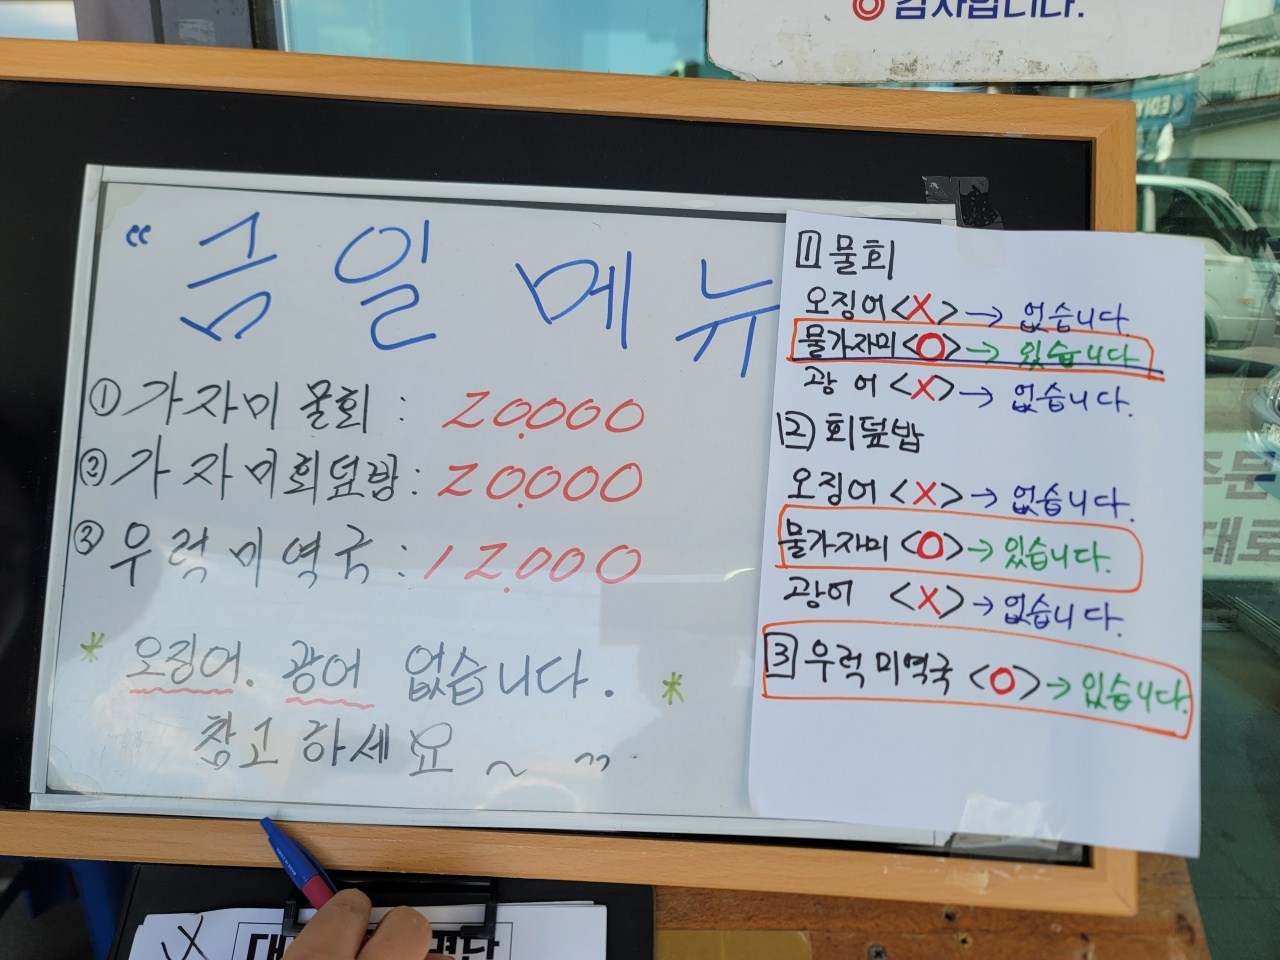 ◎ 감사입니다.
EDIY
“ 금일 메뉴
① 가자미 물회 : 20.000
② 가자미회덮밥 : 20.000
③ 우럭미역국 : 12.000
* 오징어. 광어 없습니다. *
참고하세요 ~ ”
1 물회
오징어 <X> → 없습니다.
물가자미 <O> → 있습니다
광어 <X> → 없습니다.
2 회덮밥
오징어 <X> → 없습니다.
물가자미 <O> → 있습니다.
광어 <X> → 없습니다.
3 우럭미역국 <O> → 있습니다.
주문
대로